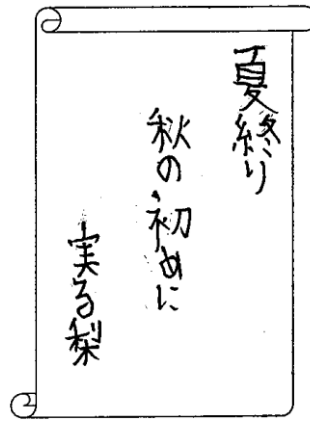 夏終り
秋の初めに
実る梨